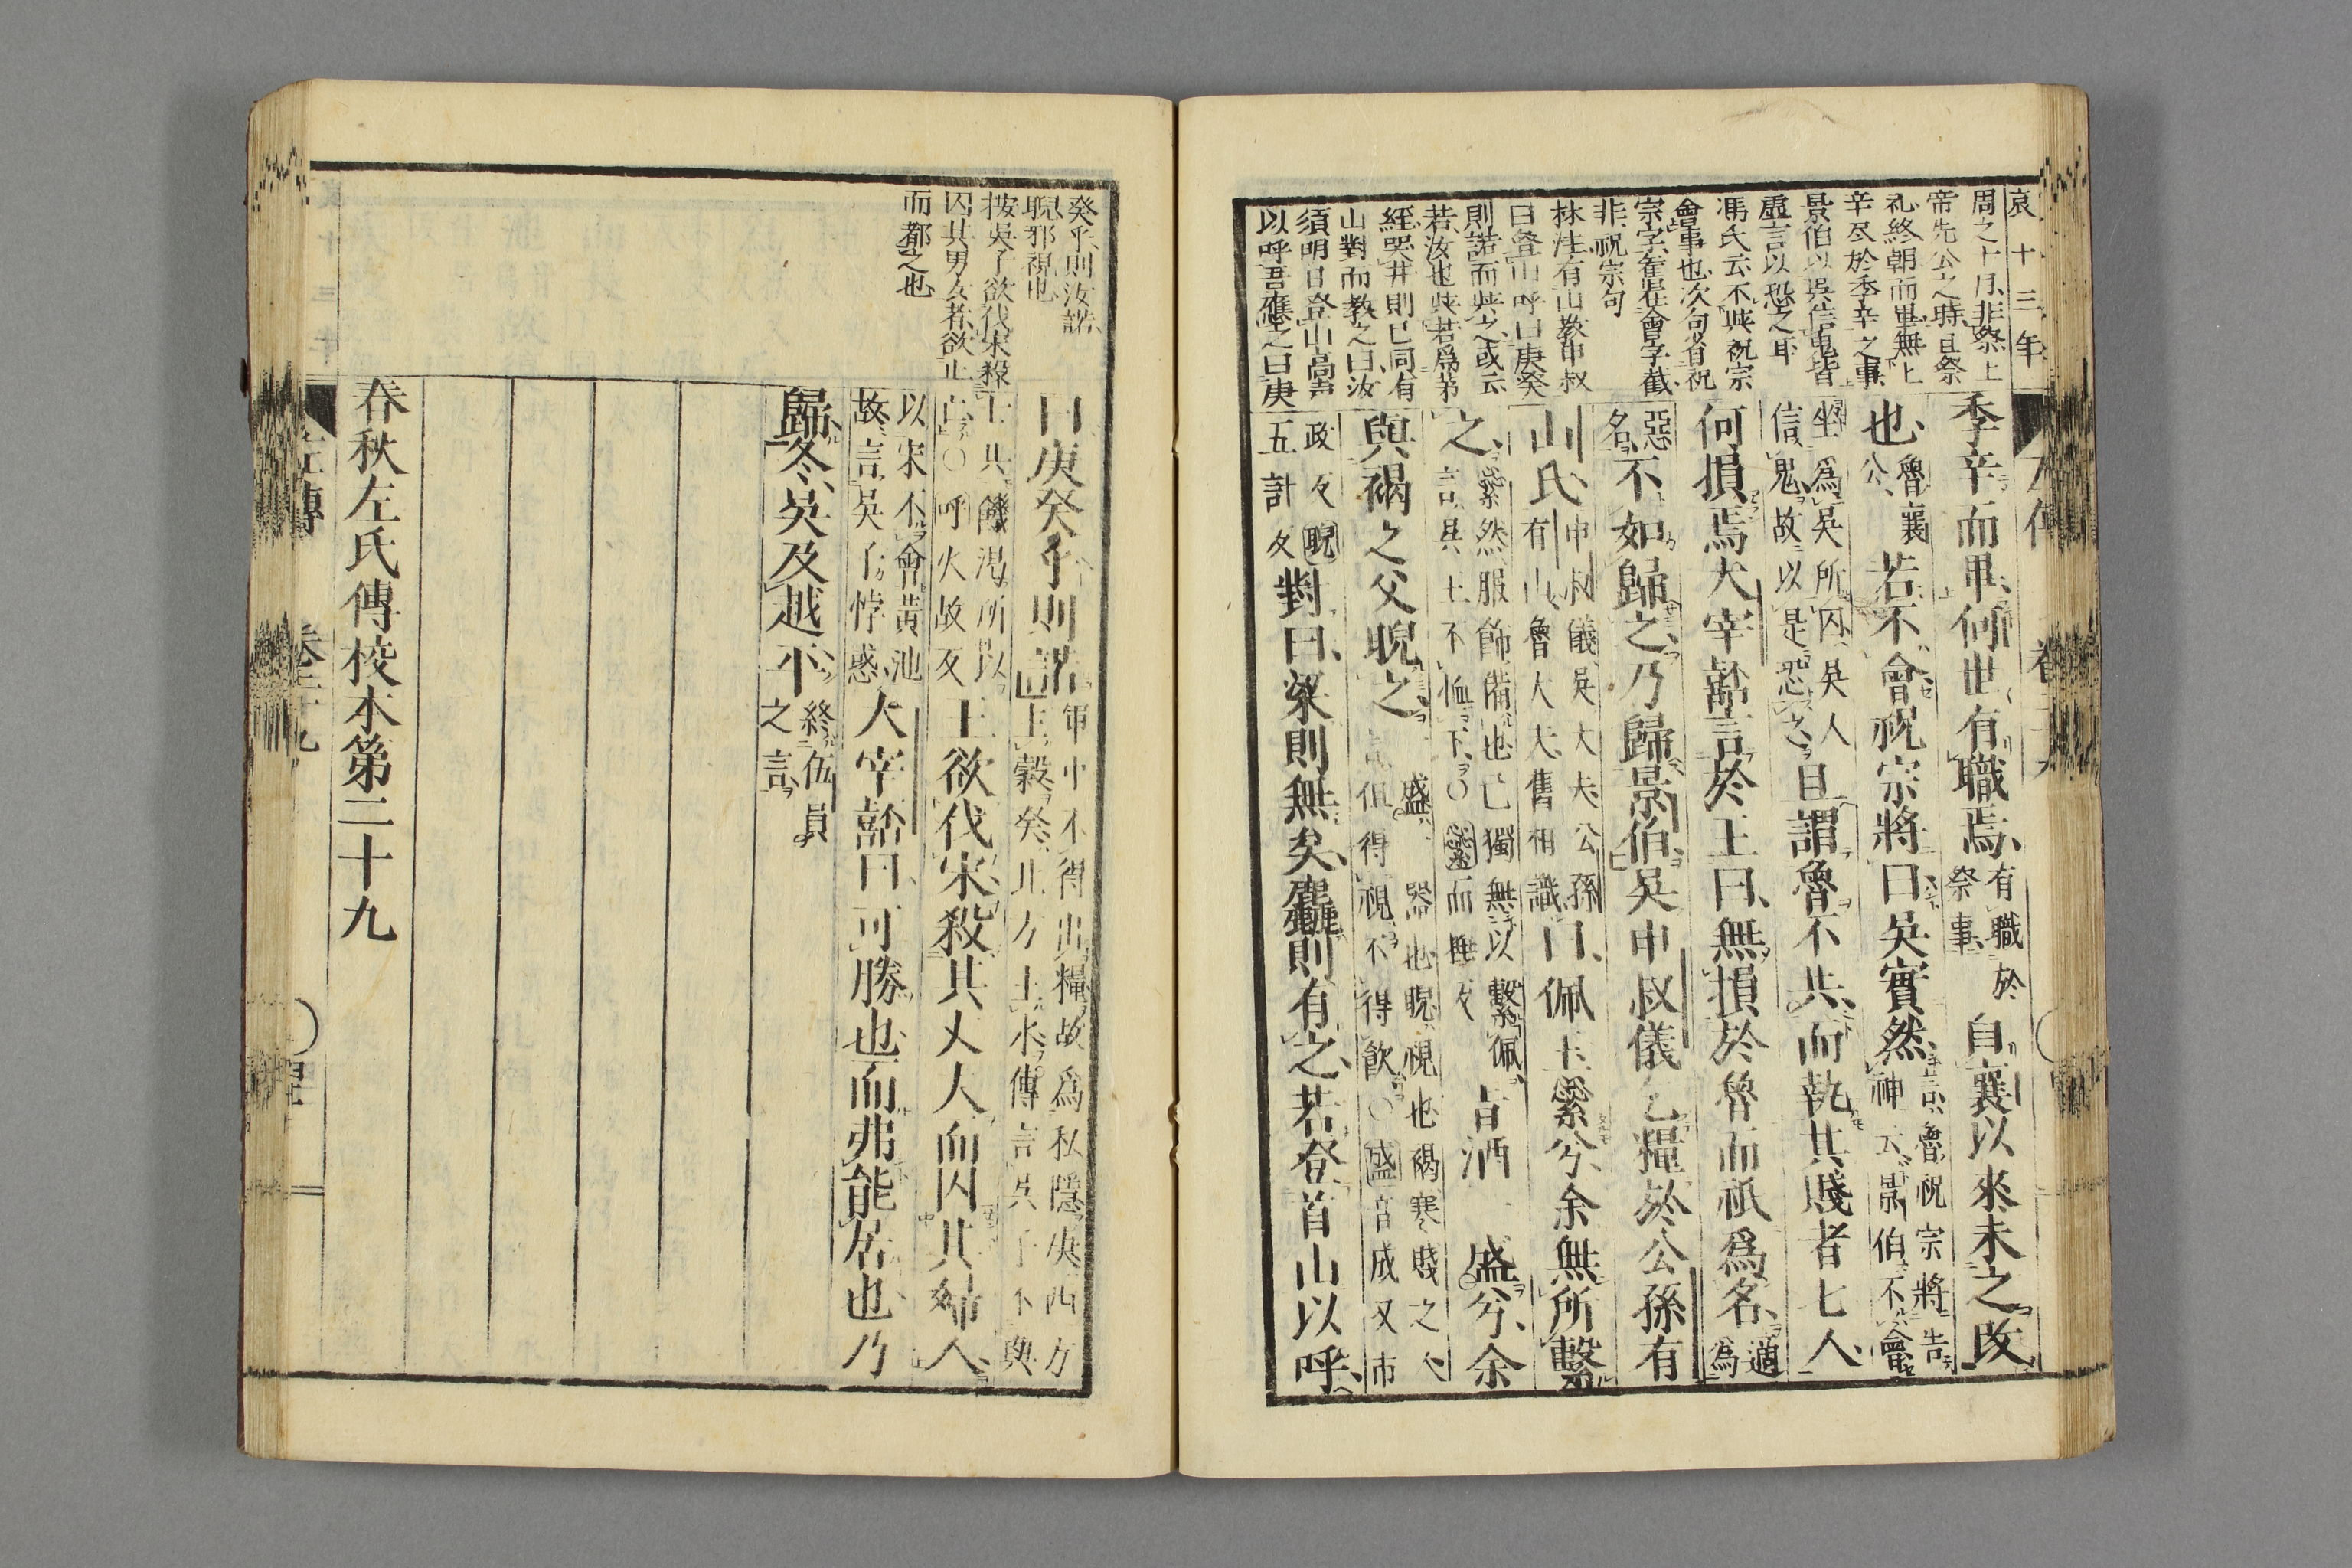 哀十三年
周之十月非祭上
帝先公之時且祭
礼終朝而畢無上
辛尽於季辛之事
景伯以吳信鬼皆
虛言以恐之耳
馮氏云不與祝宗
會事也次句省祝
宗字崔是會字截
非祝宗句
林注有山敎申叔
曰登山呼曰庚癸
則諾而與之或云
若汝也與若爲第
經哭井則已同有
山對而敎之曰汝
須明日登山高声
以呼吾應之曰庚
季辛而畢何世有職焉有職於祭事自襄以來未之改
也魯襄公若不會祝宗將曰吳實然言魯祝宗將告神云景伯不會
坐爲吳所囚吳人信鬼故以是恐之且謂魯不共而執其賤者七人
何損焉大宰嚭言於王曰無損於魯而祇爲名適爲
惡名不如歸之乃歸景伯吳申叔儀乞糧於公孫有
山氏申叔儀吳大夫公孫有山魯大夫舊相識曰佩玉繠兮余無所繫
之繠然服飾備也己獨無以繫佩言吳王不恤下○繠而捶反旨酒一盛兮余
與褐之父睨之一盛一器也睨視也褐寒賤之人言但得視不得飮○盛音成又市
政反睨五計反對曰粱則無矣麤則有之若登首山以呼
癸乎則汝諾
睨邪視也
按吳子欲伐宋殺
囚其男女者欲止
而都之也
曰庚癸乎則諾軍中不得出糧故爲私隱庚西方主穀癸北方主水傳言吳子不與
士共饑渴所以亡○呼火故反王欲伐宋殺其丈人而囚其婦人
以宋不會黃池故言吳子悖惑大宰嚭曰可勝也而弗能居也乃
歸冬吳及越平終伍員之言
春秋左氏傳校本第二十九
左傳 卷二十九